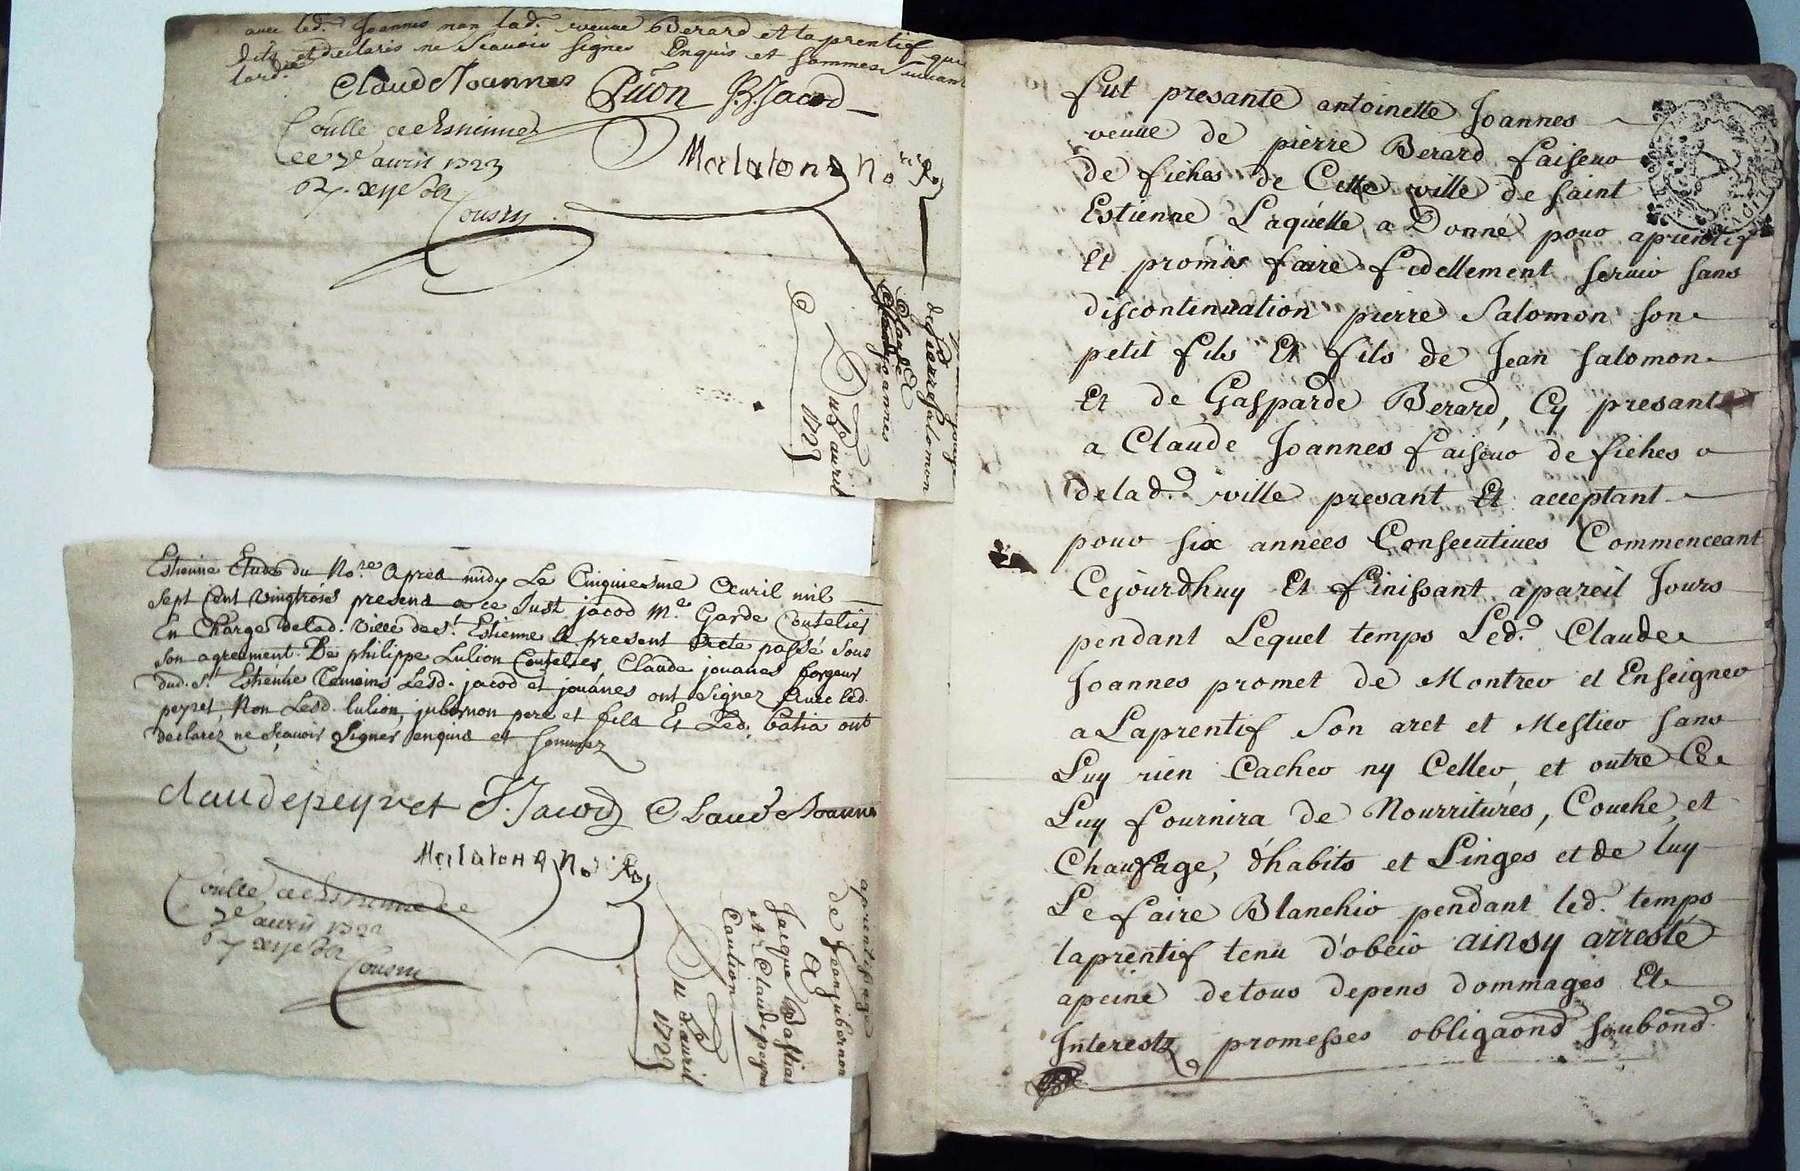 avec led. Joannes non lad. veuve Berard et laprentif qui
lard. dits et declarés ne scavoir signer Enquis et sommes suivant
Claude Joannes Luon J. Jacod
Coulle a St Estienne
ce 7e avril 1723
Malatona No.re Ro.
Cousin
de pierre Salomon
a
Claude Joannes
Du 5e avril
1723
Estienne Etude du No.re apres midy Le Cinquiesme Avril mil
sept Cent vingtrois presens a ce Just jacod M.e Garde Coutelier
En Charge delad. ville de S.t Estienne le present Acte passé sous
son agreement. De philippe Lulion Coutelier, Claude jouanes forgeur
dud. S.t Estienne temoins Lesd. jacod et jouanes ont signez Avec led.
peyret, Non Lesd. lulion, jubernon pere et fils Et Led. batia ont
declarez ne scavoir signer enquis et sommez
claude peyret J. Jacod Claude Joannes
Malatona No.re Ro.
Coulle a St Estienne ce
7e avril 1723
Cousin
aprentissage
de Jean jubernon
a
Jacque Bastia
et Claude peyret
Caution
Du 5e avril
1723
fut presante antoinette Joannes
veuve de pierre Berard faiseur
de fiches de Cette ville de saint
Estienne Laquelle a Donné pour aprentif
Et promis faire fidellement servir sans
discontinuation pierre Salomon son
petit fils Et fils de Jean salomon
Et de Gasparde Berard, Cy presant
a Claude Joannes faiseur de fiches
delad. ville presant Et acceptant
pour six années Consecutives Commenceant
Cejourdhuy Et finissant apareil Jours
pendant Lequel temps Led. Claude
Joannes promet de Montrer et Enseigner
a Laprentif son aret et Mestier sans
Luy rien Cacher ny Celler, et outre Ce
Luy fournira de Nourritures, Couche, et
Chaufage, d'habits et Linges et de luy
Le faire Blanchir pendant led. temps
laprentif tenu d'obeir ainsy arresté
apeine detous depens dommages Et
Interests promesses obligaons soubond